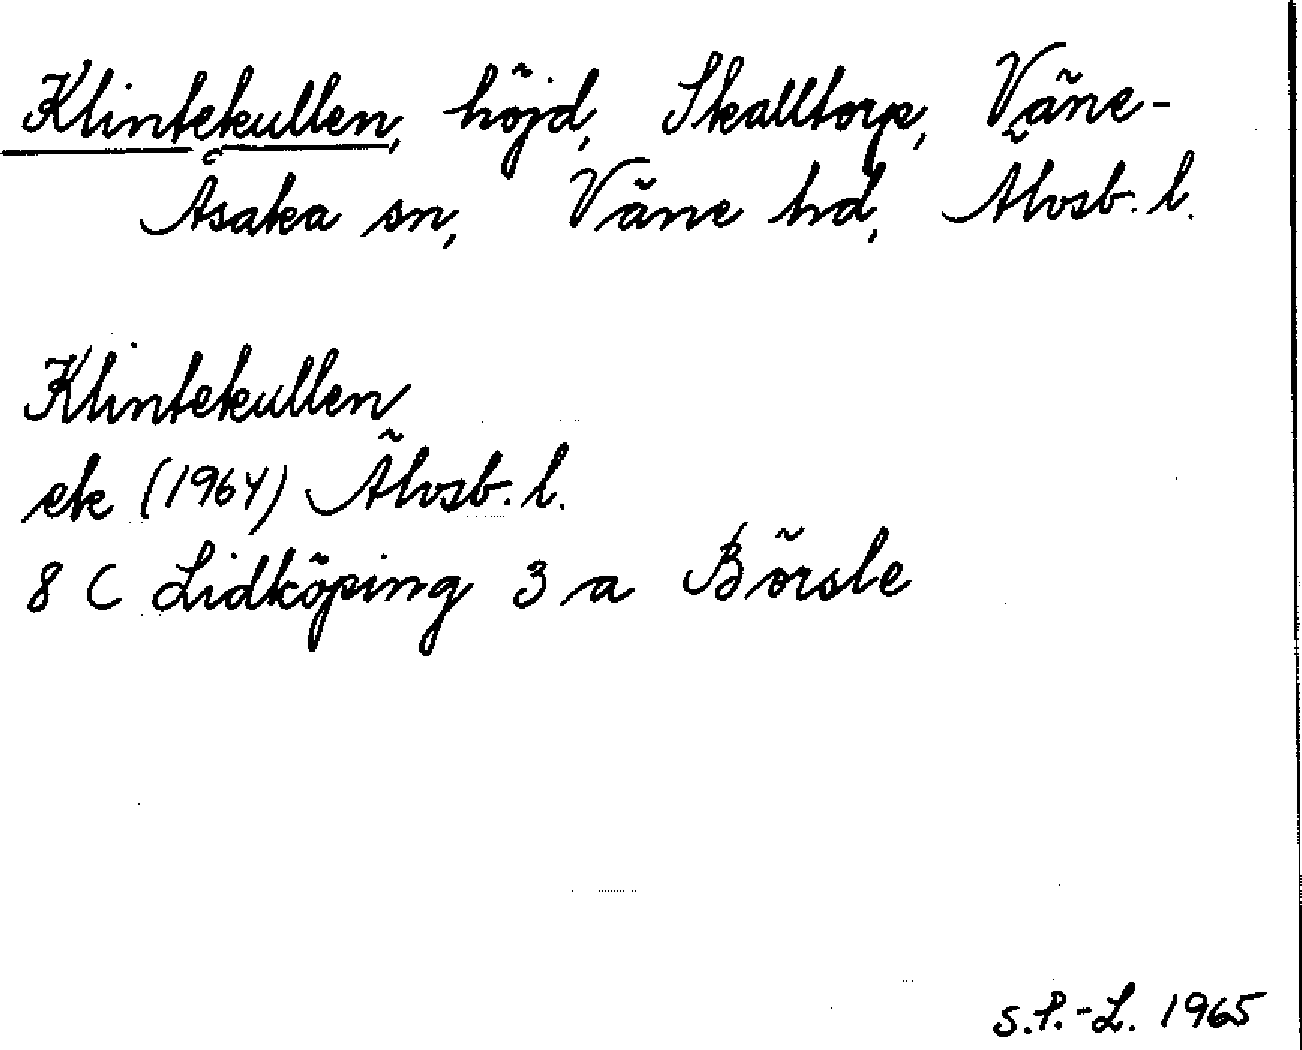 Klintekullen, höjd, Skalltorp, Väne-
Åsaka sn, Väne hd, Älvsb. l.
Klintekullen
ek (1964) Älvsb. l.
8 C Lidköping 3 a Börsle
S.P.-L. 1965